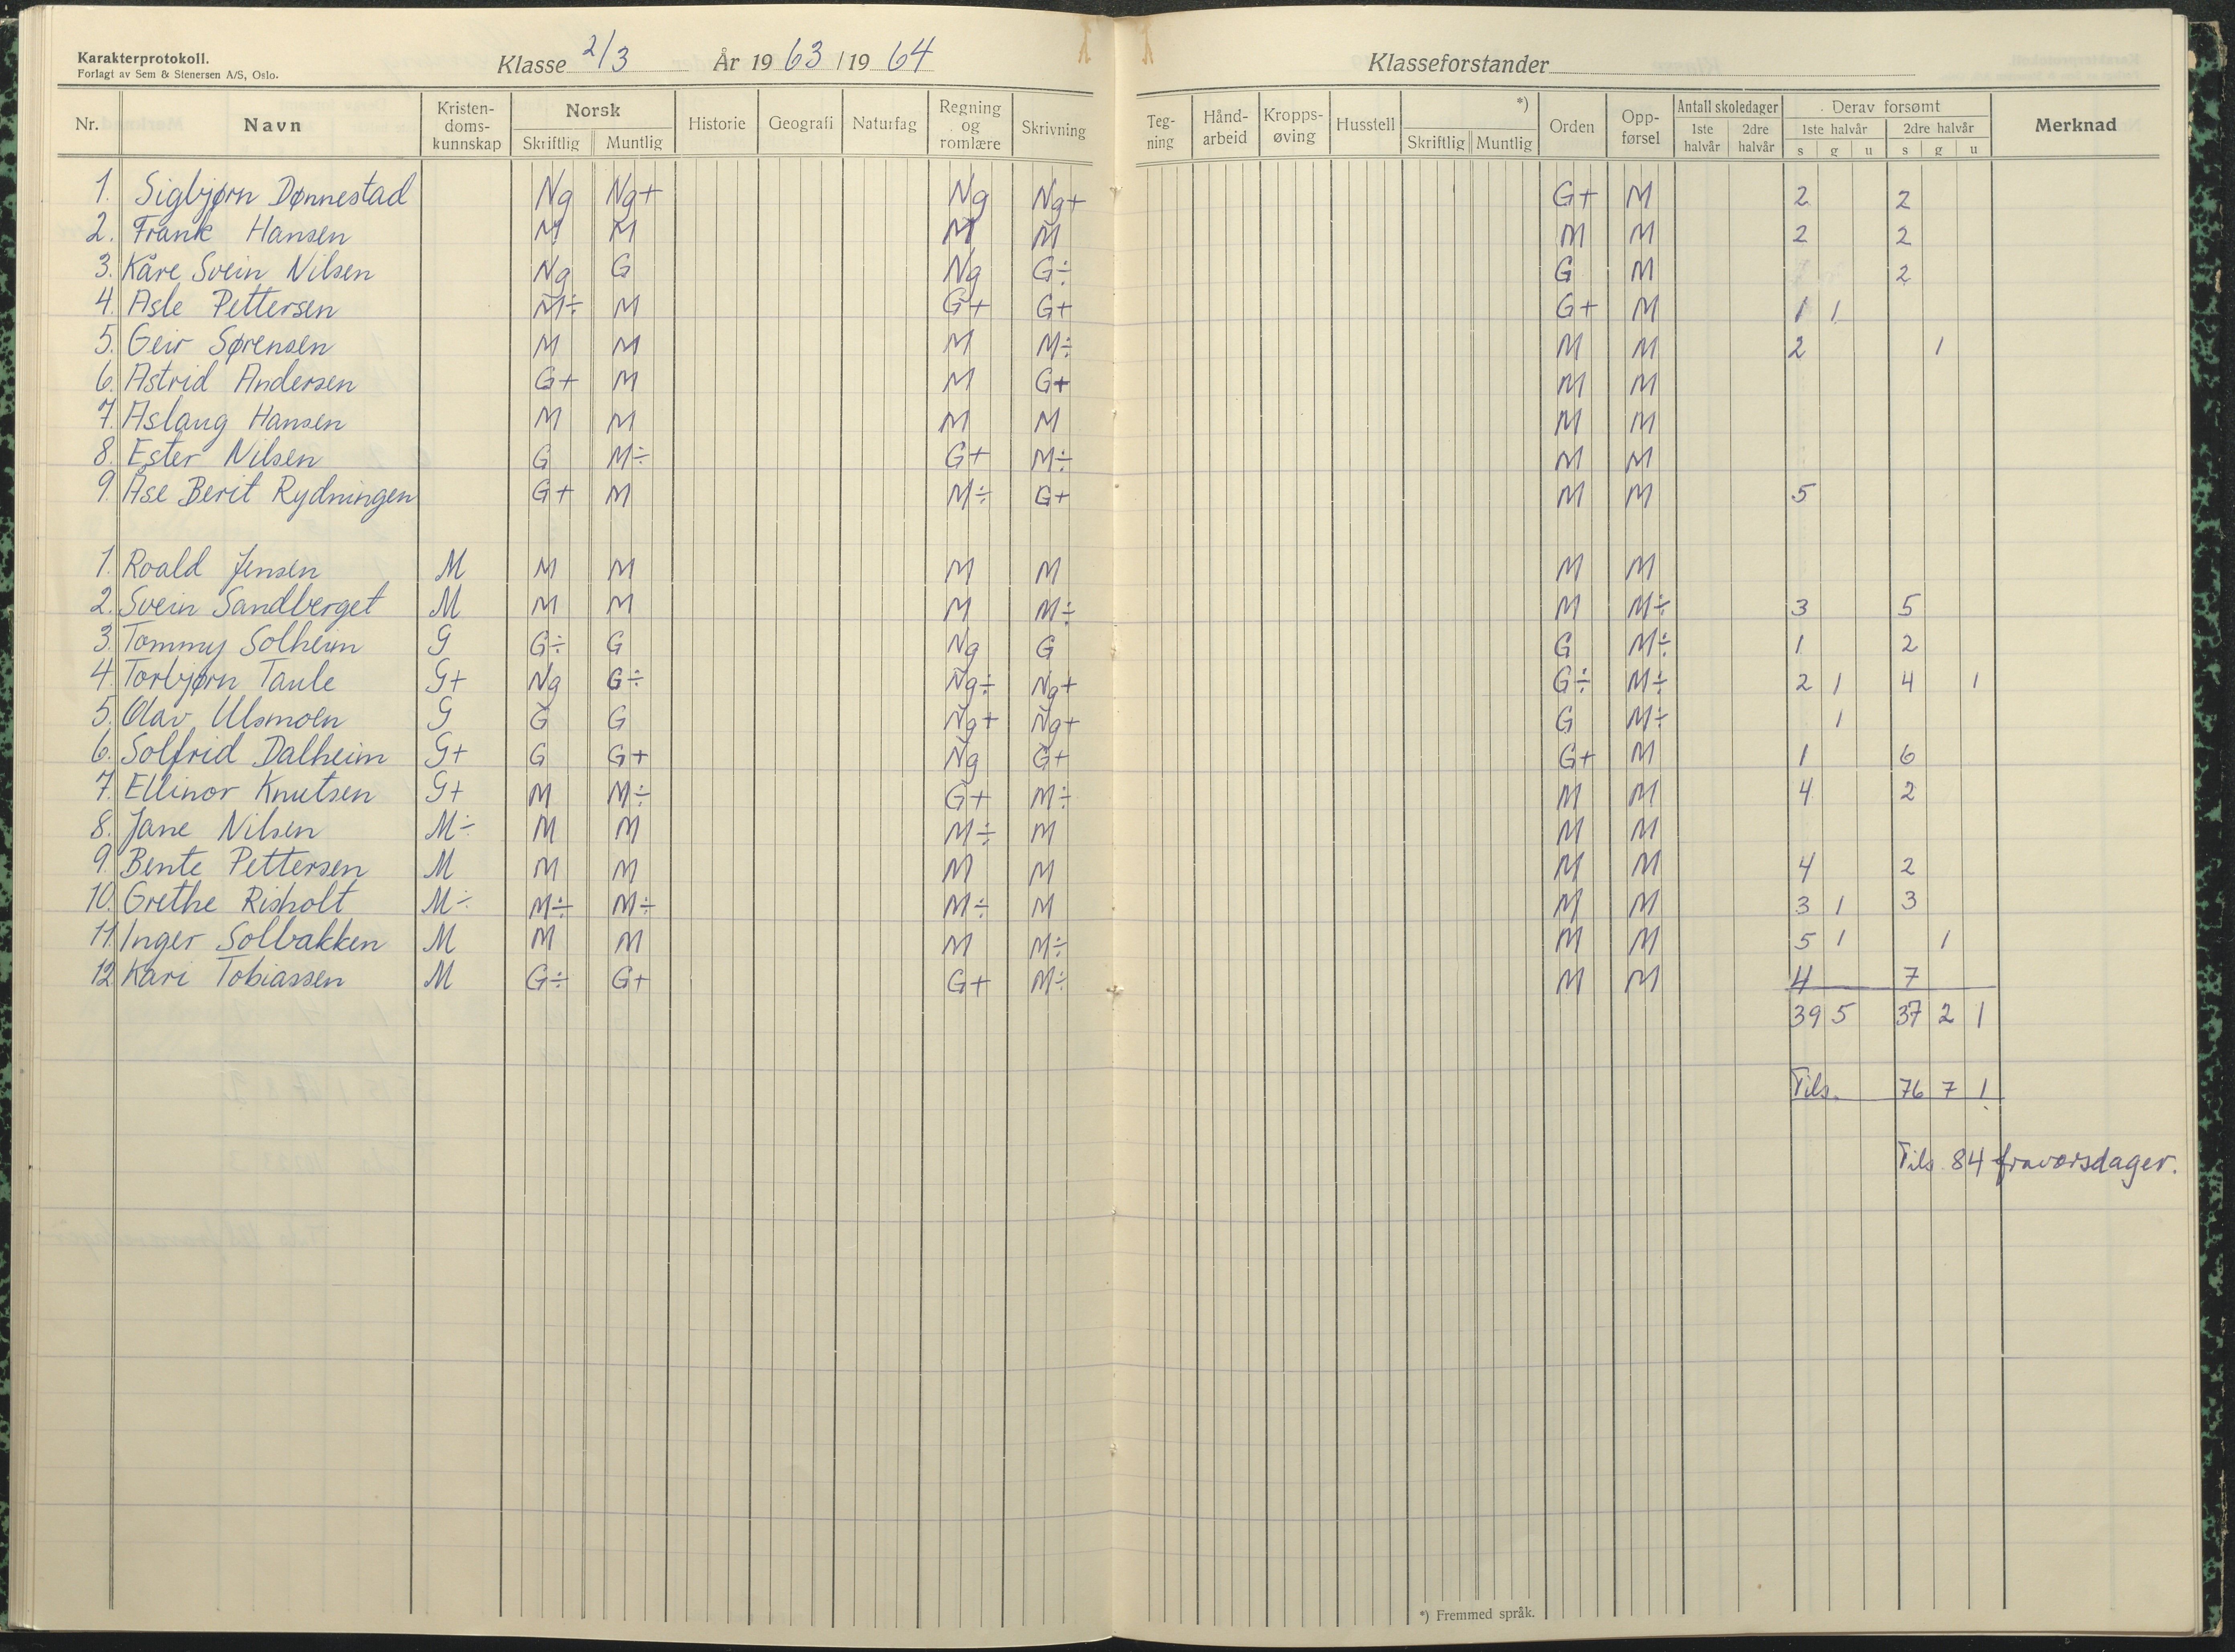 Karakterprotokoll.
Forlagt av Sem & Stenersen A/S, Oslo.
Klasse 2/3 År 1963 / 1964
Klasseforstander
Nr. Navn Kristen-doms-kunnskap Norsk Skriftlig Muntlig Historie Geografi Naturfag Regning og romlære Skrivning Teg-ning Hånd-arbeid Kropps-øving Husstell *) Skriftlig Muntlig Orden Opp-førsel Antall skoledager 1ste halvår 2dre halvår Derav forsømt 1ste halvår s g u 2dre halvår s g u Merknad
1. Sigbjørn Dønnestad Ng Ng+ Ng Ng+ G+ M 2 2
2. Frank Hansen M M M M M M 2 2
3. Kåre Svein Nilsen Ng G Ng G÷ G M 2
4. Asle Pettersen M÷ M G+ G+ G+ M 1 1
5. Geir Sørensen M M M M÷ M M 2 1
6. Astrid Andersen G+ M M G+ M M
7. Aslaug Hansen M M M M M M
8. Ester Nilsen G M÷ G+ M÷ M M
9. Åse Berit Rydningen G+ M M÷ G+ M M 5
1. Roald Jensen M M M M M M M
2. Svein Sandberget M M M M M÷ M M÷ 3 5
3. Tommy Solheim G G÷ G Ng G G M÷ 1 2
4. Torbjørn Taule G+ Ng G÷ Ng÷ Ng+ G÷ M÷ 2 1 4 1
5. Olav Ulsmoen G G G Ng+ Ng+ G M÷ 1
6. Solfrid Dalheim G+ G G+ Ng G+ G+ M 1 6
7. Ellinor Knutsen G+ M M÷ G+ M÷ M M 4 2
8. Jane Nilsen M÷ M M M÷ M M M
9. Bente Pettersen M M M M M M M 4 2
10. Grethe Risholt M÷ M÷ M÷ M÷ M M M 3 1 3
11. Inger Solbakken M M M M M÷ M M 5 1 1
12. Kari Tobiassen M G÷ G+ G+ M÷ M M 4 7
39 5 37 2 1
Tils. 76 7 1
Tils. 84 fraværsdager.
*) Fremmed språk.